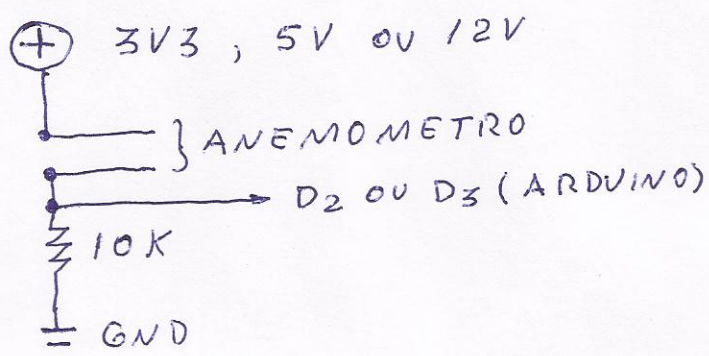 + 3V3, 5V OU 12V
} ANEMOMETRO
D2 OU D3 (ARDUINO)
10K
GND